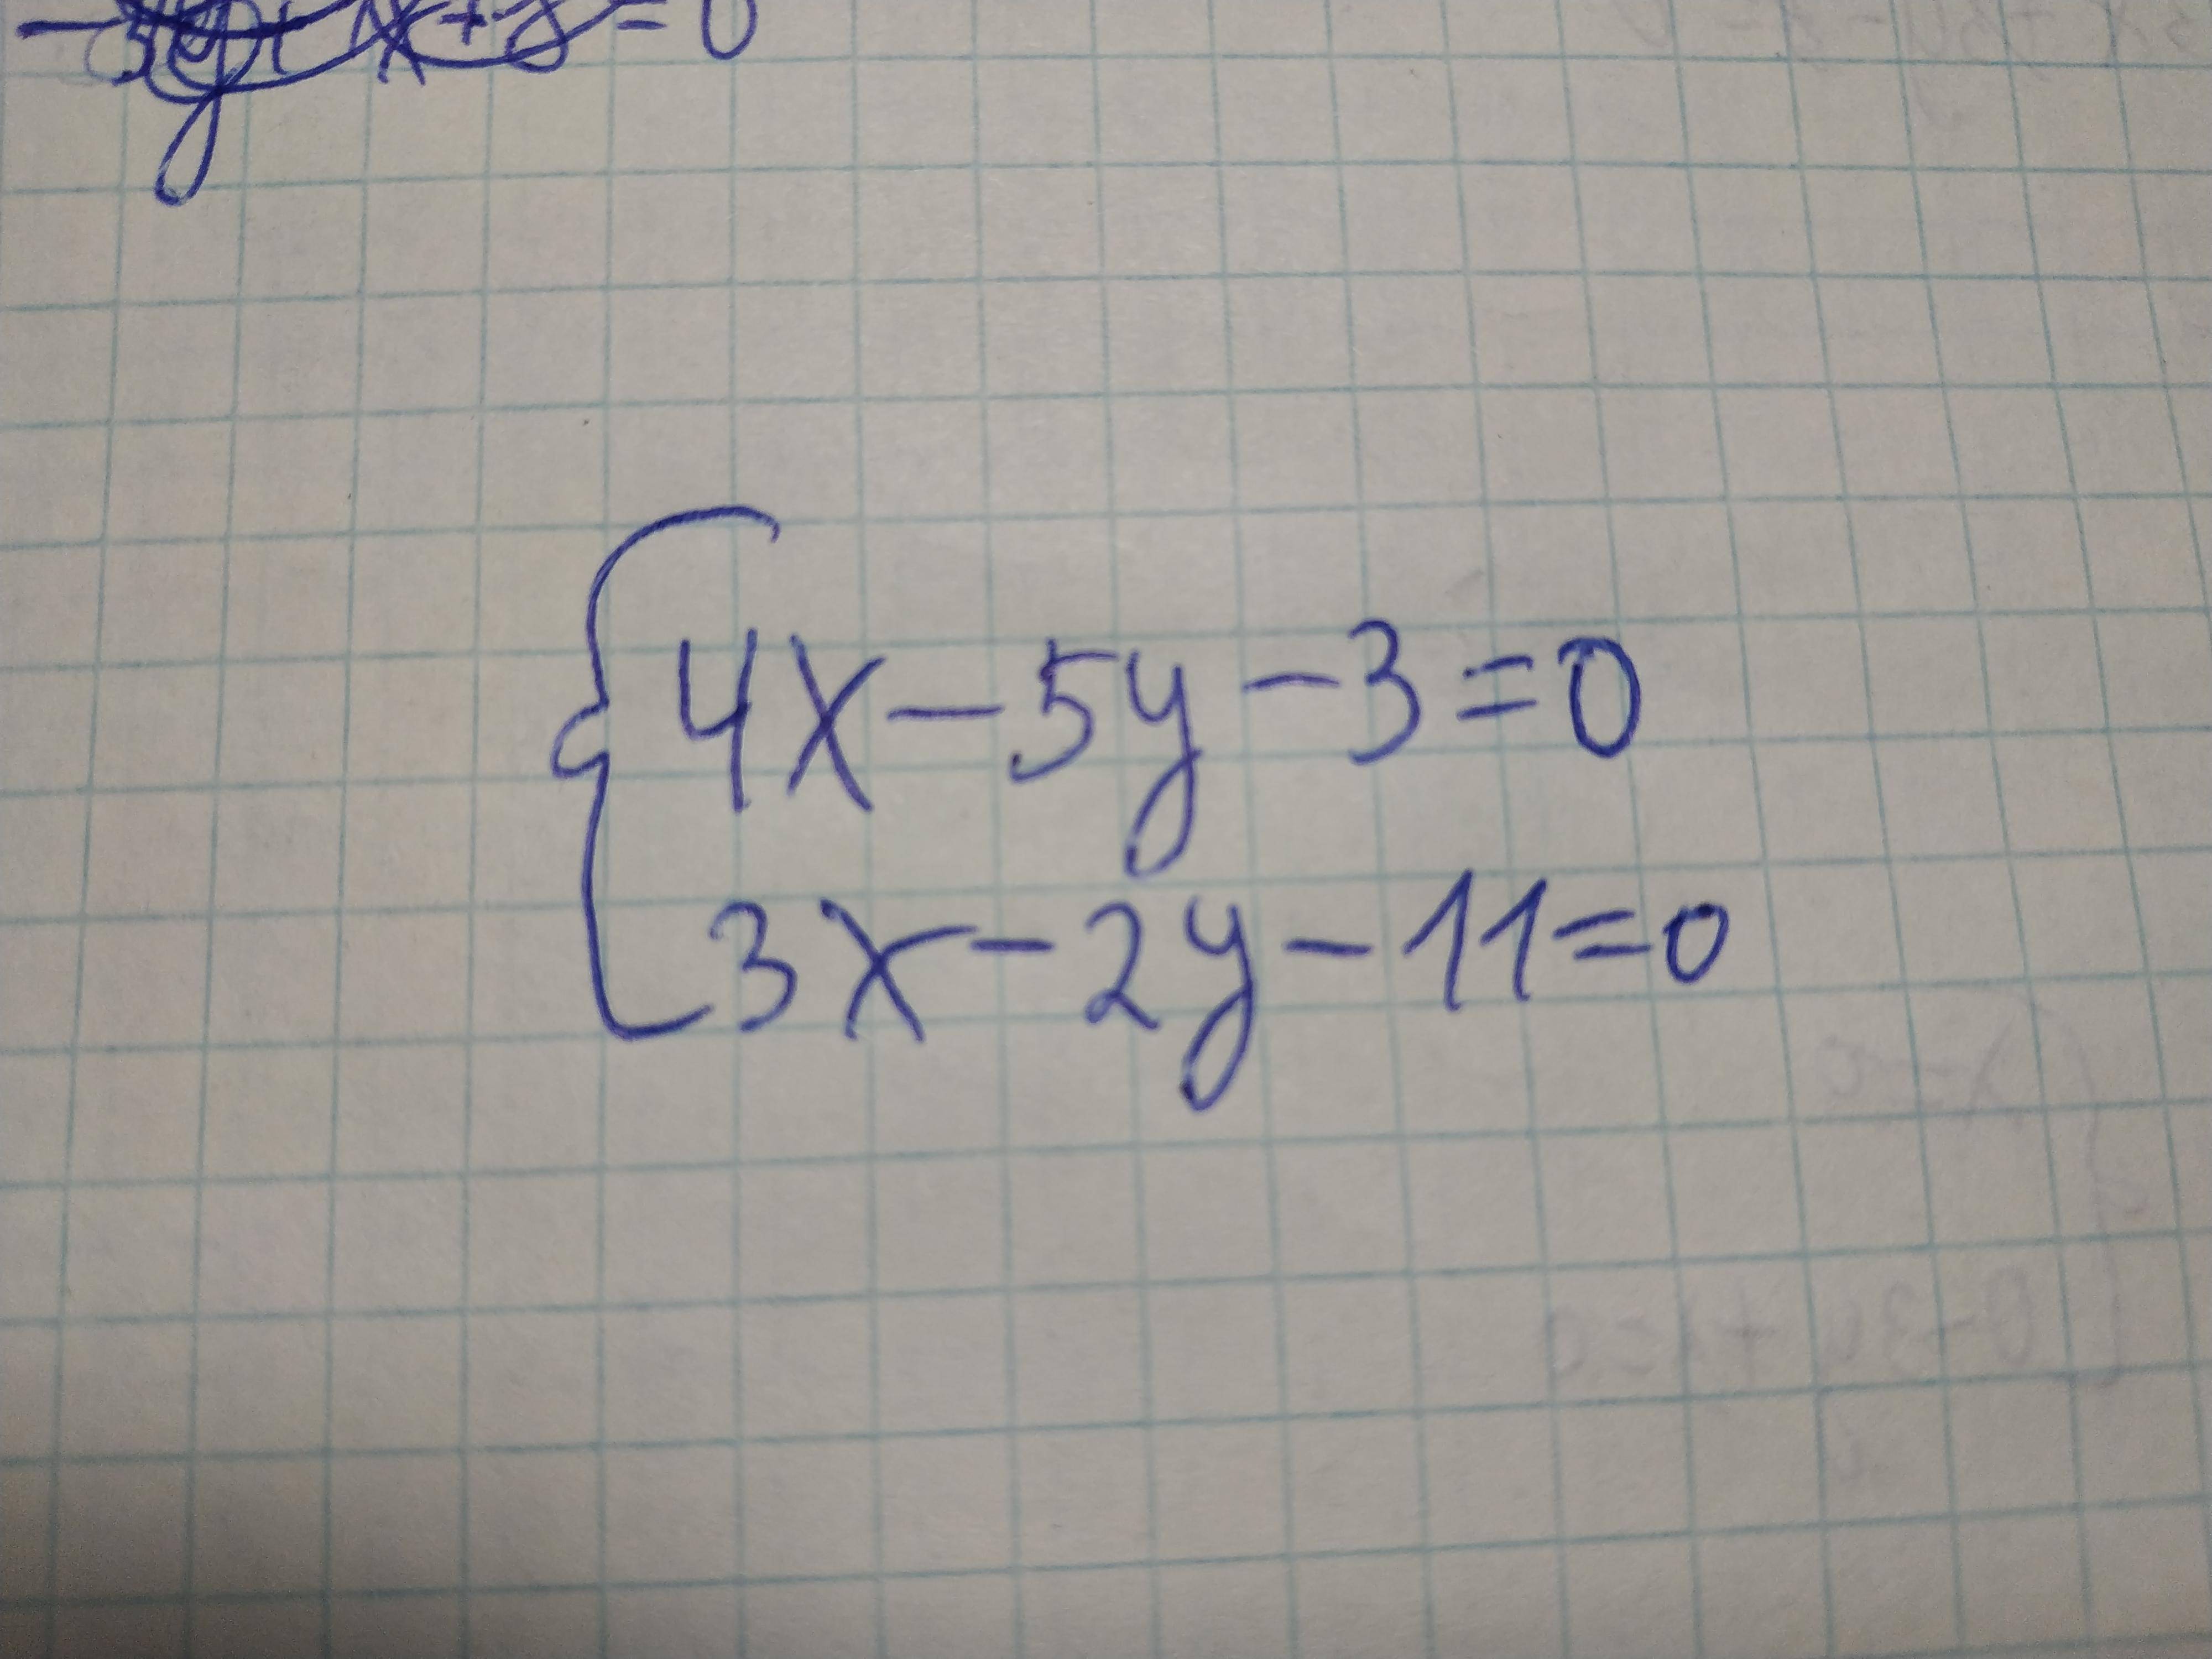 4x-5y-3=0
3x-2y-11=0